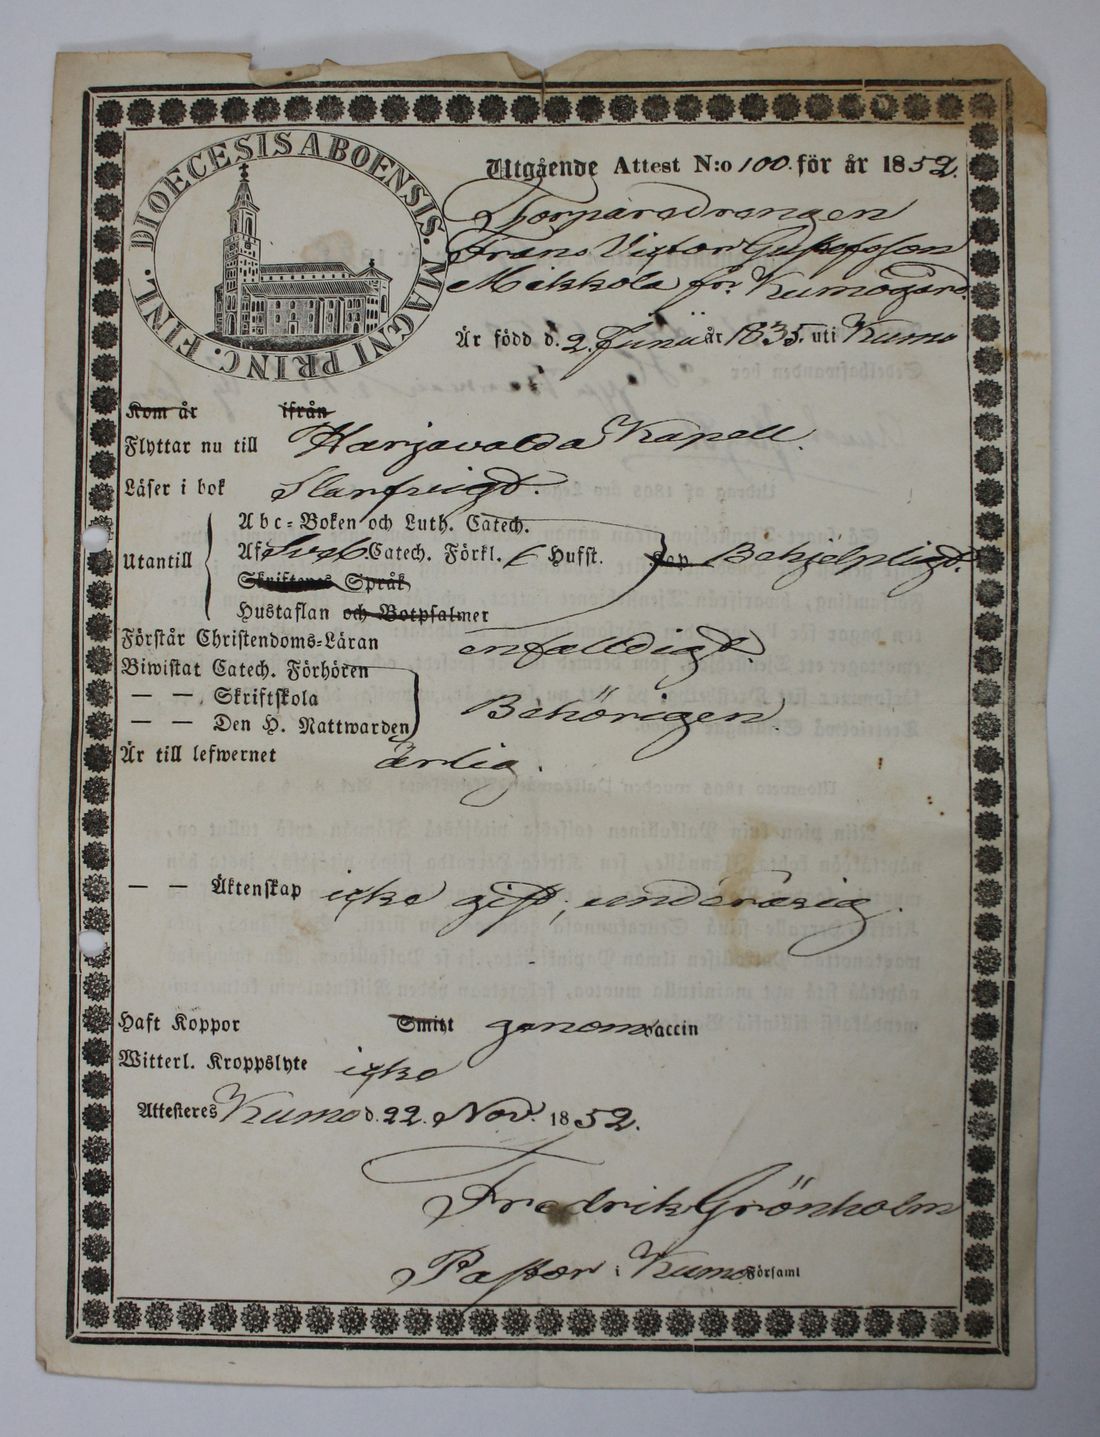 DIOECESIS ABOENSIS. MAGNI PRINC. FINL.
Utgående Attest N:o 100. för år 1852.
Torparedrengen
Frans Victor Gustafsson
Mikkola frn Kumogård.
Är född d. 2. Junii år 1835. uti Kumo
Kom år ifrån
Flyttar nu till Harjavalda Kapell.
Läser i bok Starfvigt.
Abc-Boken och Luth. Catech.
Utantill Af Catech. Förkl. Husst. Behjelpligt.
Skriftenes Språk
Hustaflan och Botpsalmer
Förstår Christendoms-Läran enfalldigt.
Biwistat Catech. Förhören
— — Skriftskola Behörigen.
— — Den H. Nattwarden
Är till lefwernet ärlig.
— — Äktenskap icke gift, underårig.
Haft Koppor Smitt genom vaccin
Witterl. Kroppslyte icke
Attesteres Kumo d. 22. Nov. 1852.
Fredrik Grönholm
Pastor i Kumo Församl